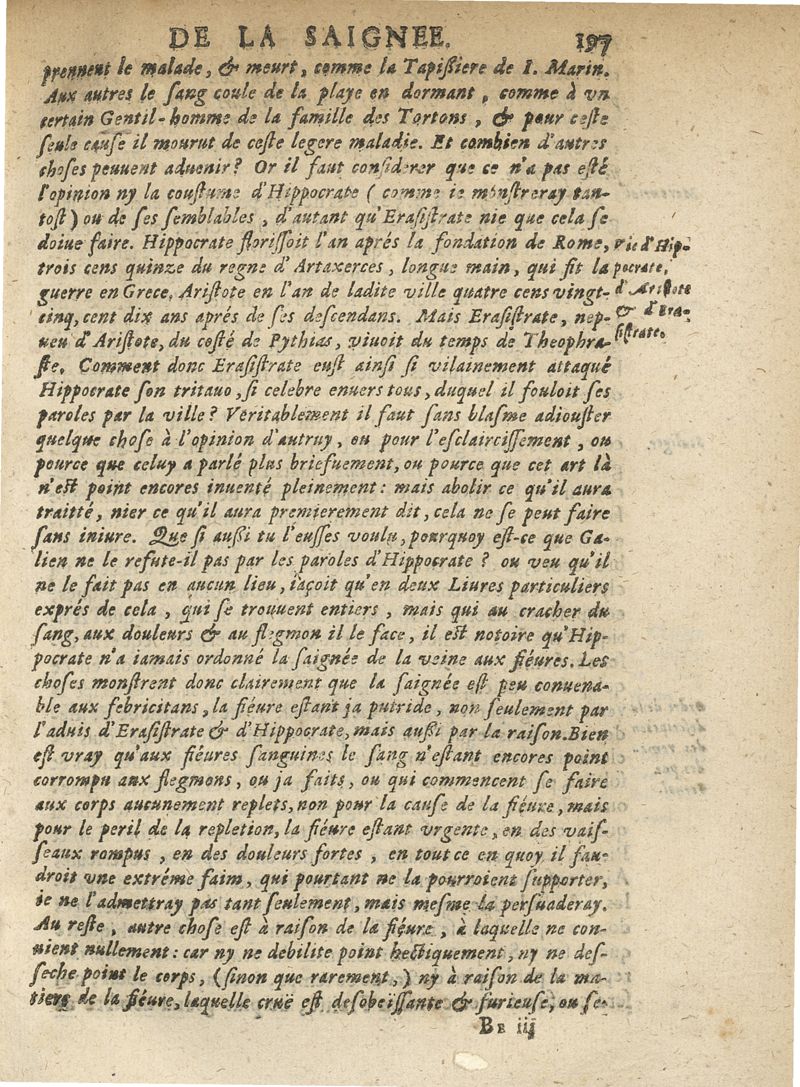 DE LA SAIGNEE. 197
prennent le malade, & meurt, comme la Tapißiere de I. Marin.
Aux autres le ſang coule de la playe en dormant, comme à vn
certain Gentil-homme de la famille des Tortons, & pour ceſte
ſeule cauſe il mourut de ceſte legere maladie. Et combien d'autres
choſes peuuent aduenir? Or il faut conſiderer que ce n'a pas eſté
l'opinion ny la couſtume d'Hippocrate (comme ie monſtreray tan-
toſt) ou de ſes ſemblables, d'autant qu'Eraſiſtrate nie que cela ſe
doiue faire. Hippocrate floriſſoit l'an aprés la fondation de Rome,
trois cens quinze du regne d'Artaxerces, longue main, qui fit la
guerre en Grece. Ariſtote en l'an de ladite ville quatre cens vingt-
cinq, cent dix ans aprés de ſes deſcendans. Mais Eraſiſtrate, nep-
ueu d'Ariſtote, du coſté de Pythias, viuoit du temps de Theophra-
ſte. Comment donc Eraſiſtrate euſt ainſi ſi vilainement attaqué
Hippocrate ſon tritauo, ſi celebre enuers tous, duquel il fouloit ſes
paroles par la ville? Veritablement il faut ſans blaſme adiouſter
quelque choſe à l'opinion d'autruy, ou pour l'eſclairciſſement, ou
pource que celuy a parlé plus briefuement, ou pource que cet art là
n'eſt point encores inuenté pleinement: mais abolir ce qu'il aura
traitté, nier ce qu'il aura premierement dit, cela ne ſe peut faire
ſans iniure. Que ſi außi tu l'euſſes voulu, pourquoy eſt-ce que Ga-
lien ne le refute-il pas par les paroles d'Hippocrate? ou veu qu'il
ne le fait pas en aucun lieu, iaçoit qu'en deux Liures particuliers
exprés de cela, qui ſe trouuent entiers, mais qui au cracher du
ſang, aux douleurs & au flegmon il le face, il eſt notoire qu'Hip-
pocrate n'a iamais ordonné la ſaignée de la veine aux fiéures. Les
choſes monſtrent donc clairement que la ſaignée eſt peu conuena-
ble aux febricitans, la fiéure eſtant ja putride, non ſeulement par
l'aduis d'Eraſiſtrate & d'Hippocrate, mais außi par la raiſon. Bien
eſt vray qu'aux fiéures ſanguines le ſang n'eſtant encores point
corrompu aux flegmons, ou ja faits, ou qui commencent ſe faire
aux corps aucunement replets, non pour la cauſe de la fiéure, mais
pour le peril de la repletion, la fiéure eſtant vrgente, en des vaiſ-
ſeaux rompus, en des douleurs fortes, en tout ce en quoy il fau-
droit vne extréme faim, qui pourtant ne la pourroient ſupporter,
ie ne l'admettray pas tant ſeulement, mais meſme la perſuaderay.
Au reſte, autre choſe eſt à raiſon de la fiéure, à laquelle ne con-
uient nullement: car ny ne debilite point hectiquement, ny ne deſ-
ſeche point le corps, (ſinon que rarement,) ny à raiſon de la ma-
tiere de la fiéure, laquelle cruë eſt deſobeiſſante & furieuſe, ou ſe-
BE iij
Vie d'Hip-
pocrate,
d'Ariſtote
& d'Era-
ſiſtrate.